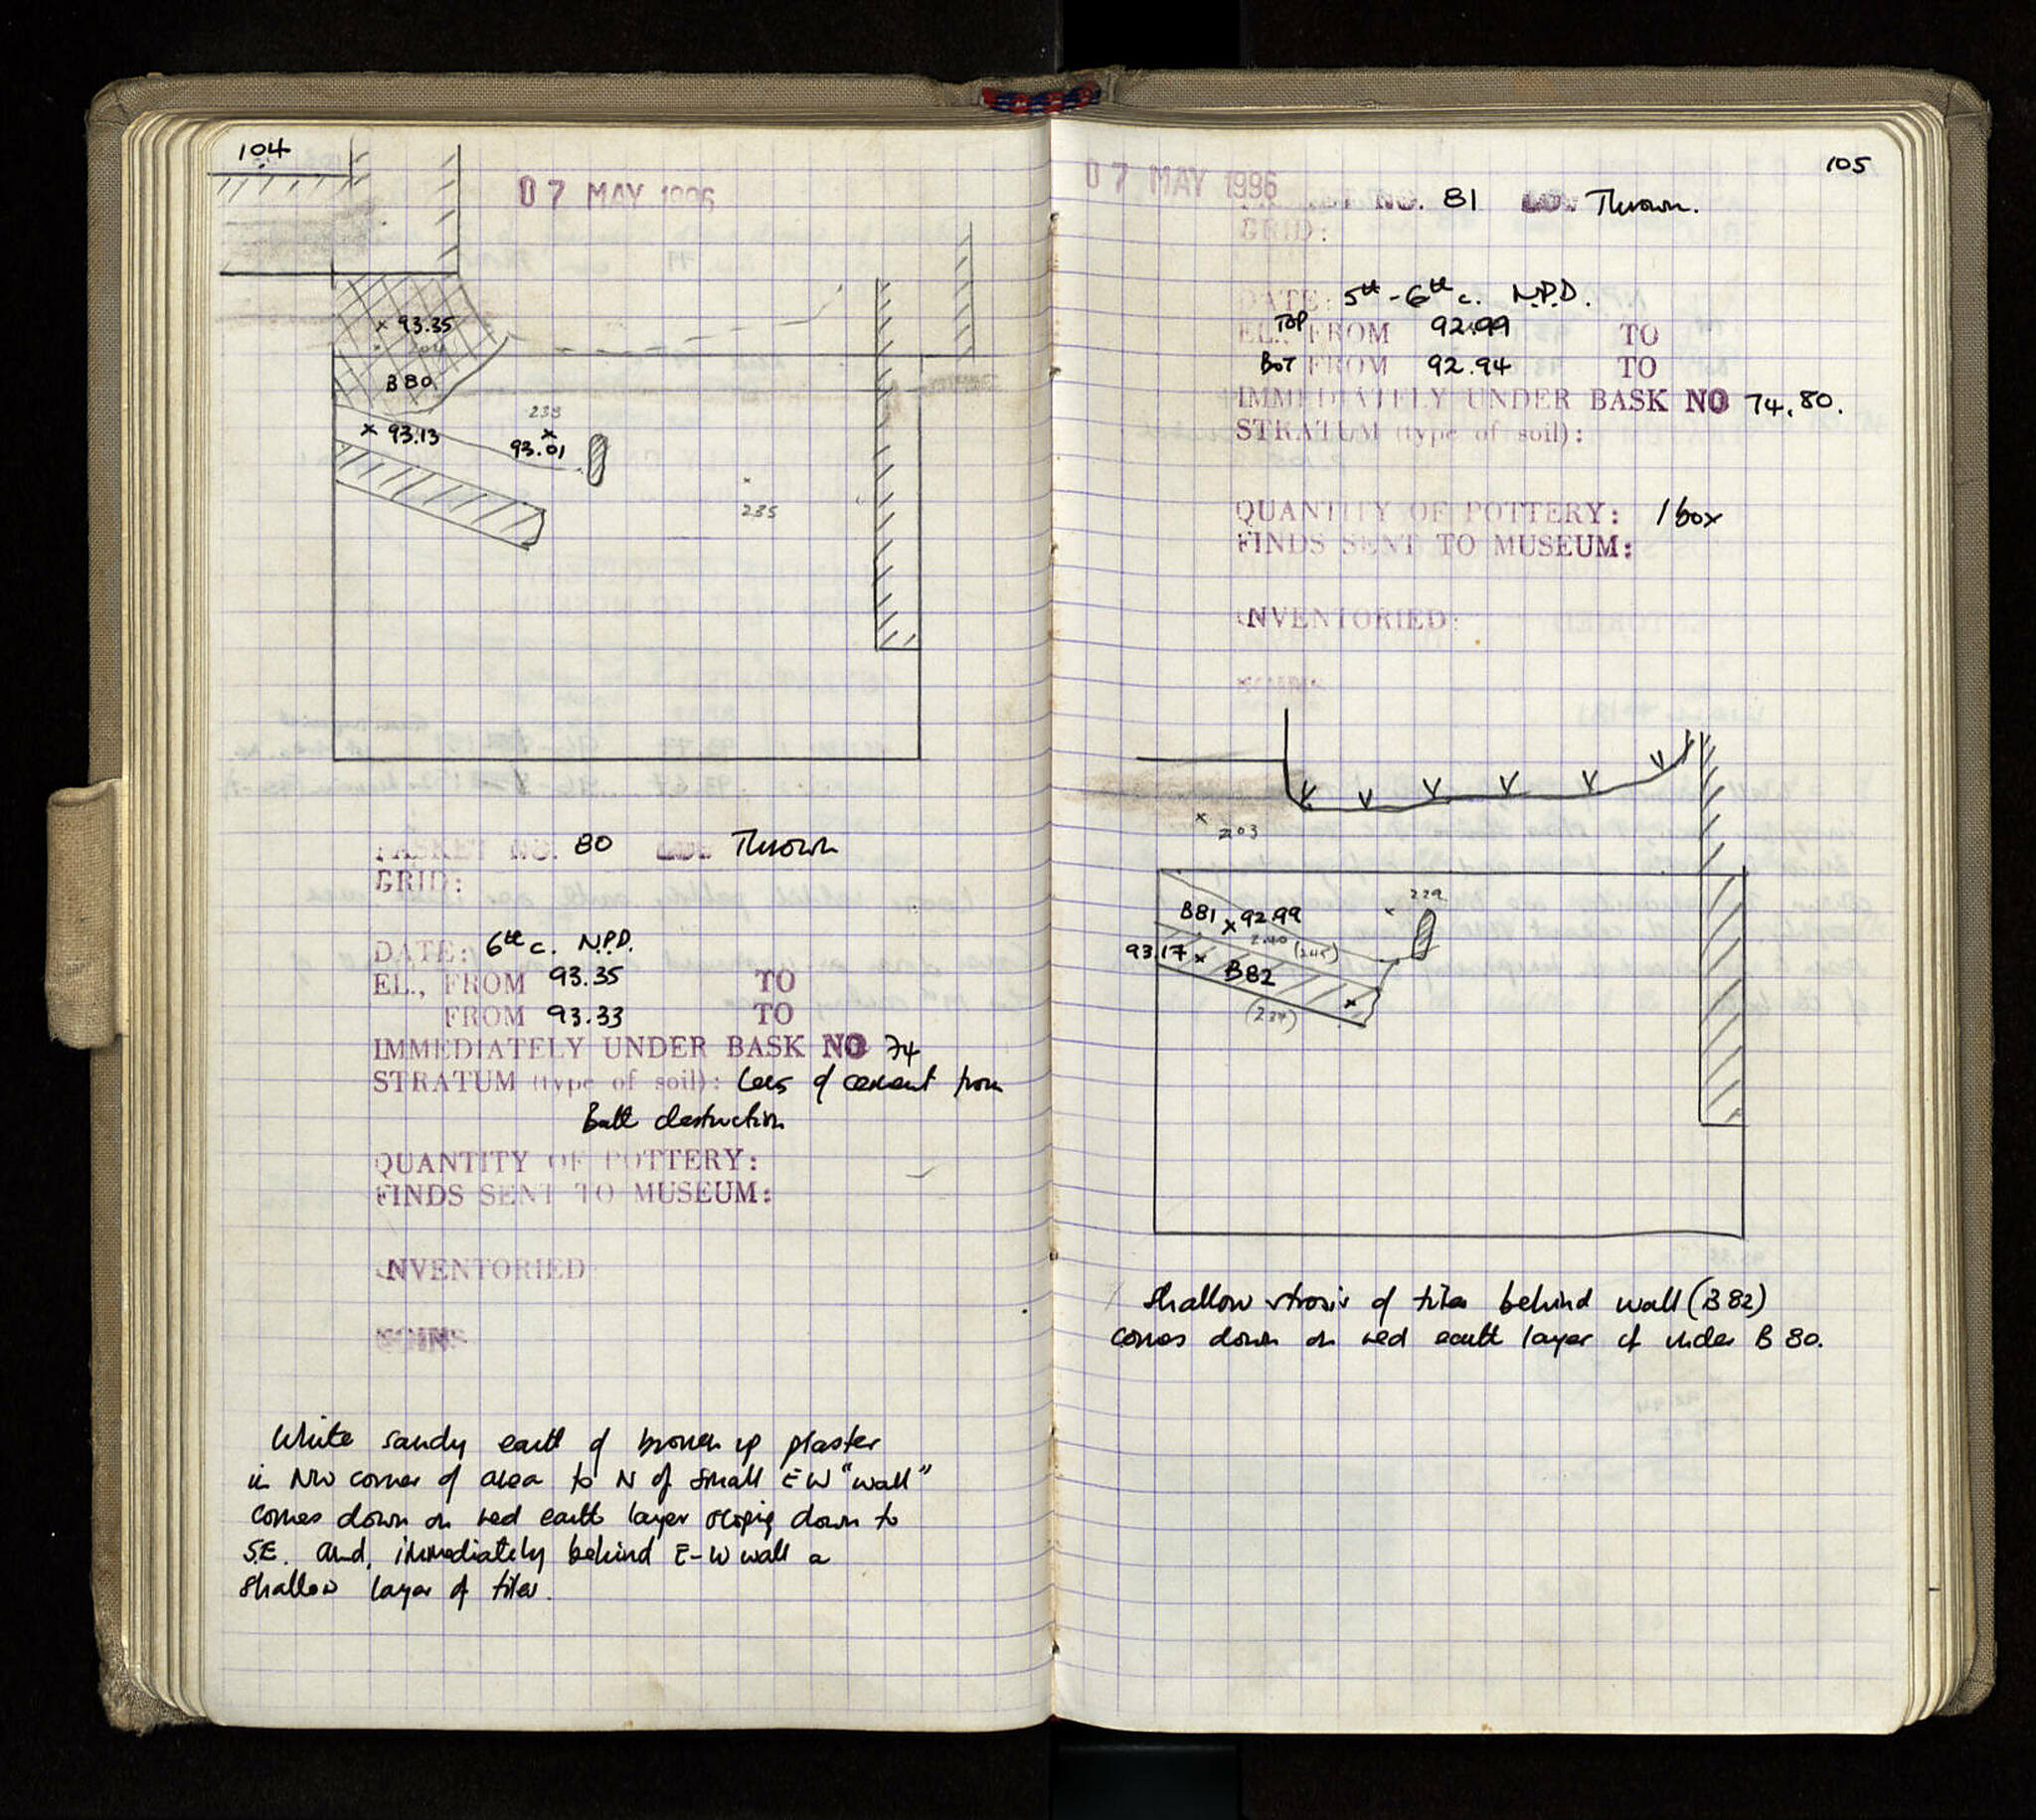 104
07 MAY 1996
× 93.35
B 80
× 93.13
238
×
93.01
235
BASKET NO. 80 LOT Thrown
GRID:
DATE: 6th c. N.P.D.
EL., FROM 93.35 TO
FROM 93.33 TO
IMMEDIATELY UNDER BASK NO 74
STRATUM (type of soil): of cement from
Bath destruction
QUANTITY OF POTTERY:
FINDS SENT TO MUSEUM:
INVENTORIED
COINS
White sandy earth of broken up plaster
in NW corner of area to N of small EW "wall"
comes down on red earth layer sloping down to
S.E. and, immediately behind E-W wall a
shallow layer of tiles.
105
07 MAY 1996
BASKET NO. 81 LOT Thrown.
GRID:
DATE: 5th - 6th c. N.P.D.
TOP EL., FROM 92.99 TO
BOT FROM 92.94 TO
IMMEDIATELY UNDER BASK NO 74, 80.
STRATUM (type of soil):
QUANTITY OF POTTERY: 1 box
FINDS SENT TO MUSEUM:
INVENTORIED:
COINS
×
203
229
B81 × 92.99
2.40 (245)
93.17 ×
B82
(234)
Shallow strosis of tiles behind wall (B 82)
comes down on red earth layer cf under B 80.